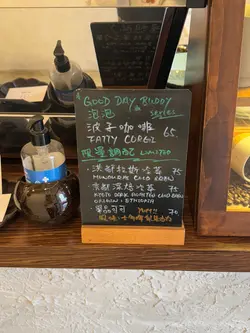 GOOD DAY BUDDY
泡泡 series
波子咖啡 65.
FATTY CORGI
限量調配 LIMITED
・洪都拉斯冷萃 75
HONDURAS COLD BREW
・京都深焙冷萃 75
KYOTO DARK ROASTED COLD BREW
ORIGIN: ETHIOPIA
・單品可可 75